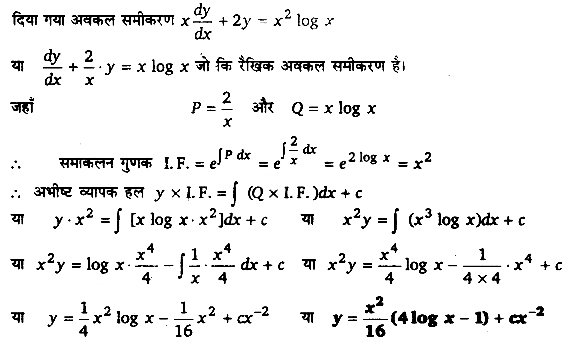 दिया गया अवकल समीकरण x dy/dx + 2y = x² log x
या dy/dx + 2/x · y = x log x जो कि रैखिक अवकल समीकरण है।
जहाँ P = 2/x और Q = x log x
∴ समाकलन गुणक I. F. = e^∫P dx = e^∫2/x dx = e^2 log x = x²
∴ अभीष्ट व्यापक हल y × I. F. = ∫ (Q × I. F. )dx + c
या y · x² = ∫ [x log x · x²]dx + c या x²y = ∫ (x³ log x)dx + c
या x²y = log x · x⁴/4 − ∫ 1/x · x⁴/4 dx + c या x²y = x⁴/4 log x − 1/(4 × 4) · x⁴ + c
या y = 1/4 x² log x − 1/16 x² + cx⁻² या y = x²/16 (4 log x − 1) + cx⁻²